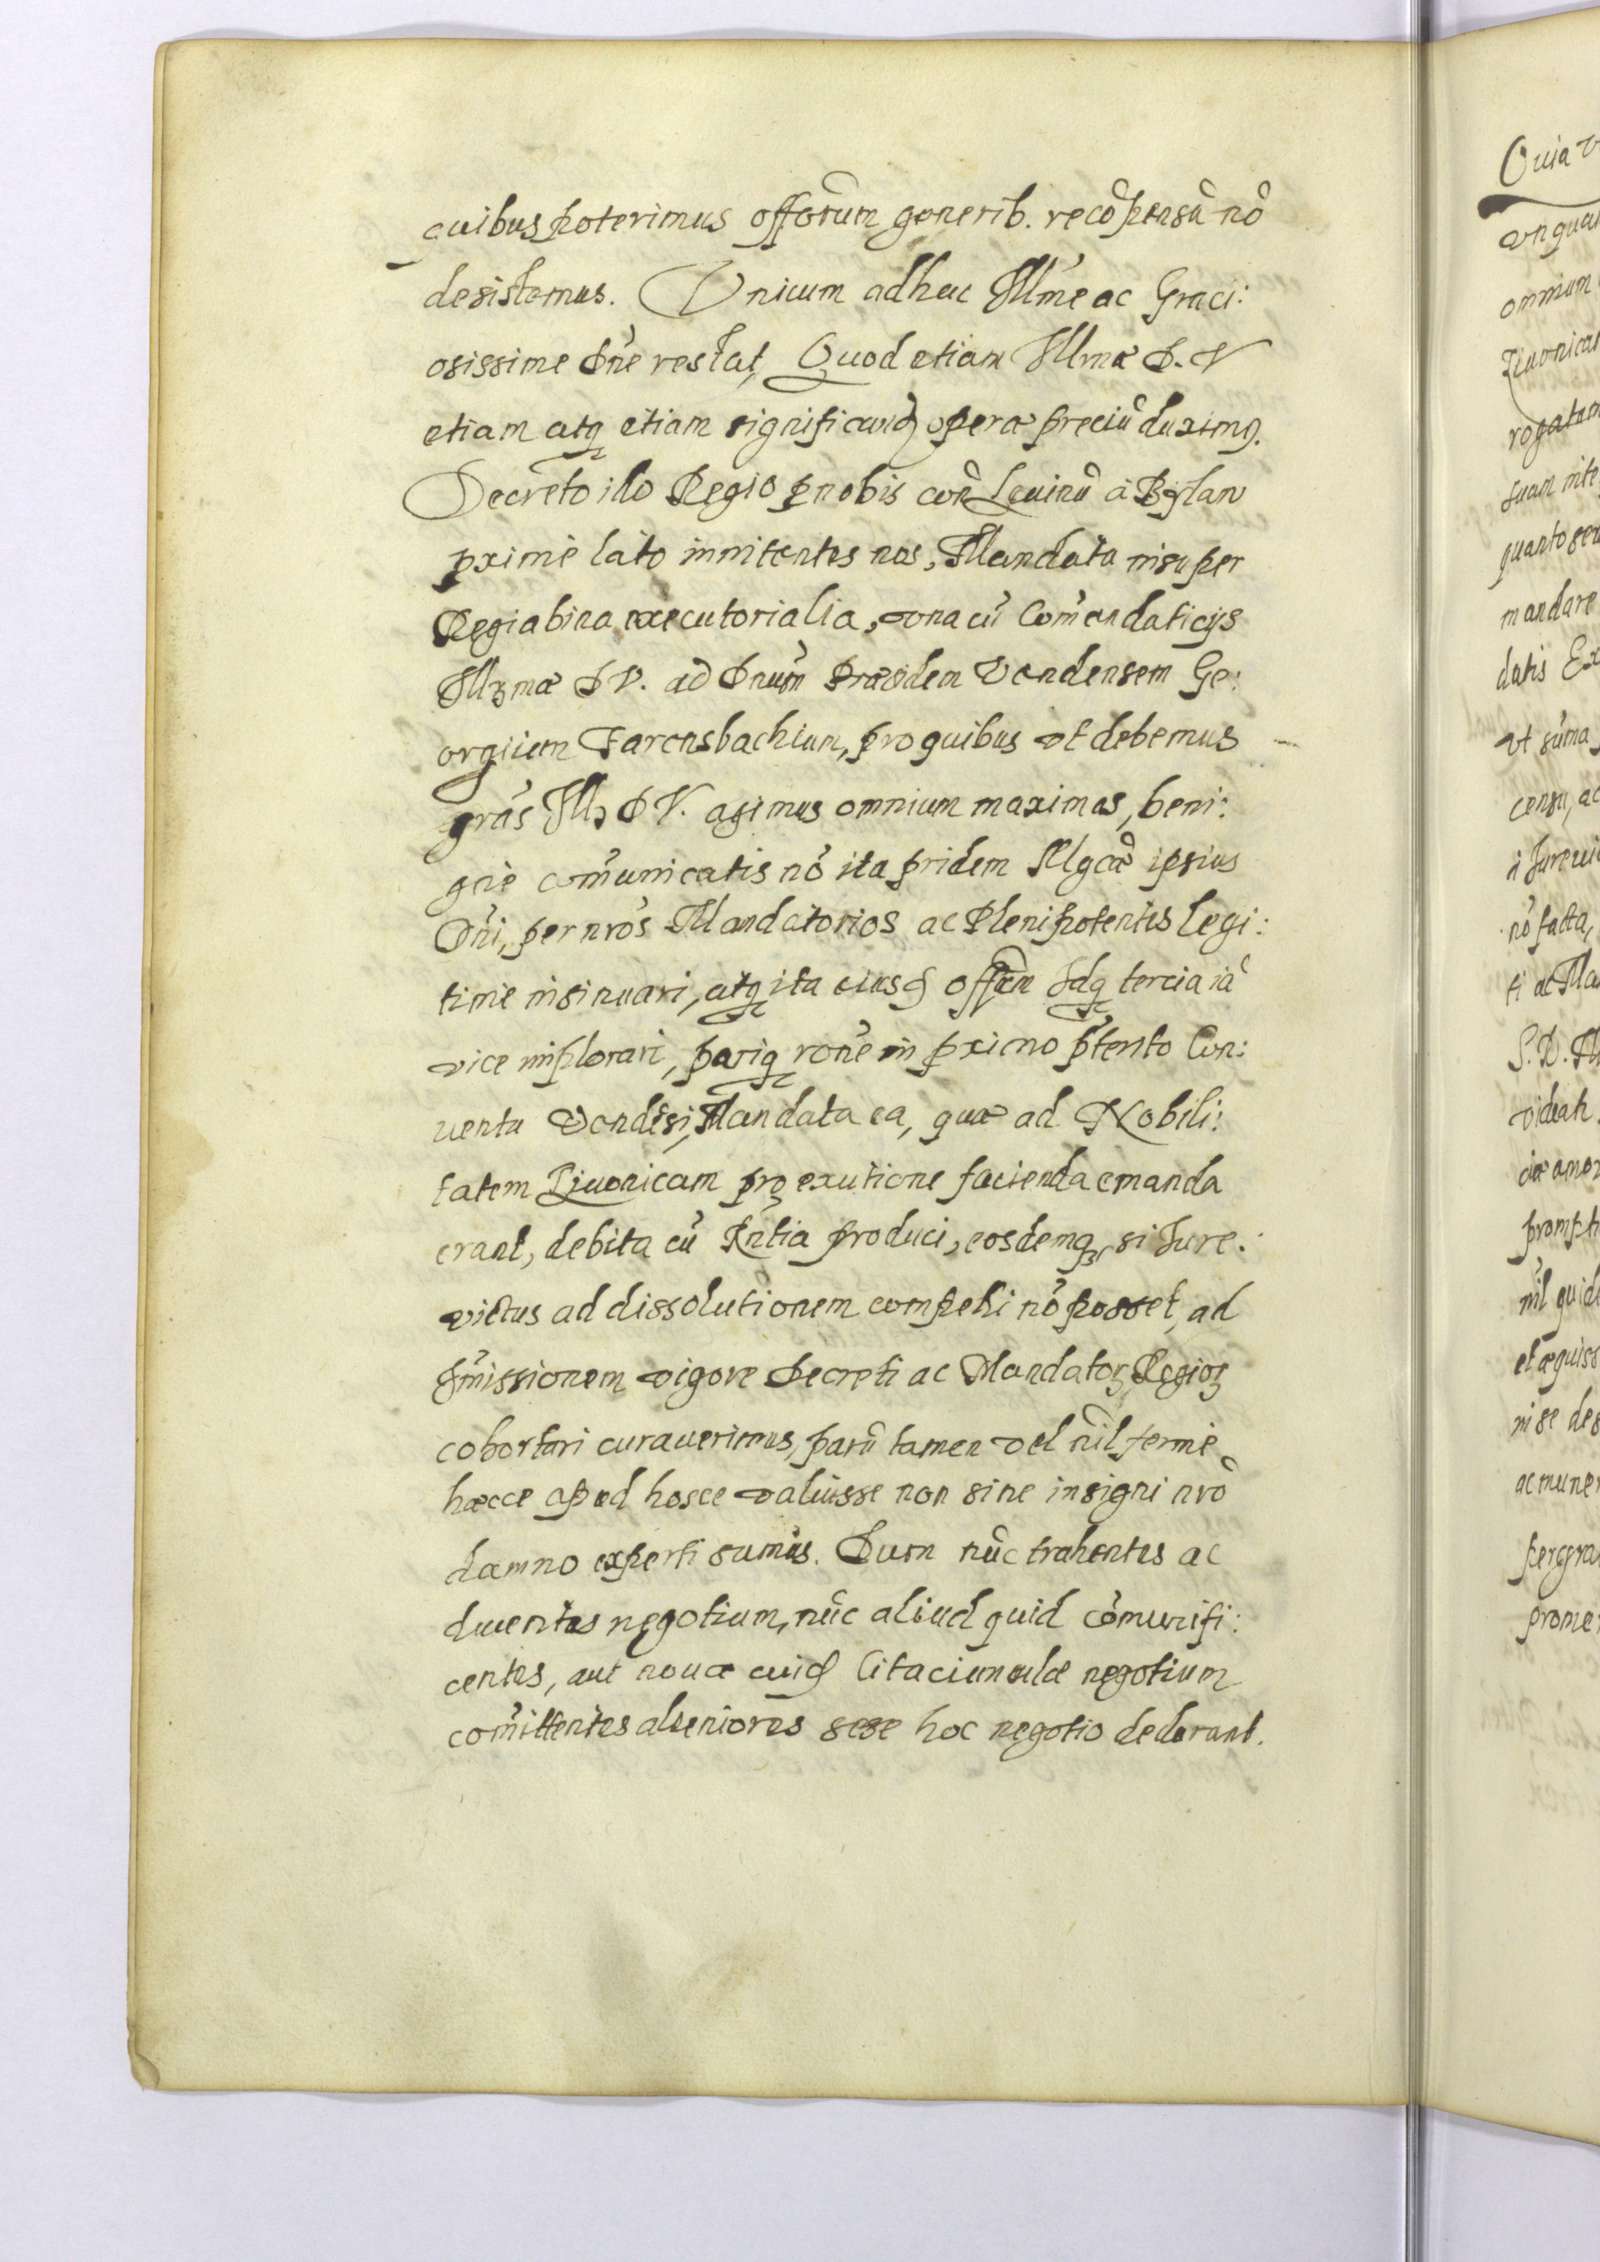 quibus poterimus officiorum generib. recõpensũ nõ
desistemus. Vnicum adhuc Illme ac Graci:
osissime Dñe restat, Quod etiam Illmæ D. V
etiam atq etiam significand operæ preciũ duximg.
Decreto illo Regio p nobis con Leuinũ à Bylaw
pximè lato innitentes nos, Mandata insuper
Regia bina executorialia, vna cũ Com̃endaticys
Illmæ D V. ad Dnum̃ Præsidem Vendensem Ge:
orgium Farensbachium, pro quibus vt debemus
gras̃ Ill D V. agimus omnium maximas, beni:
gnè com̃unicatis nõ ita pridem Mgcæ ipsius
Dñi, per nros̃ Mandatorios ac Plenipotentes legi:
timè insinuari, atq ita eiusd off̃m Idq tercia iã
vice implorari, pariq rone in pximo pterito Con:
uentu Vendẽsi, Mandata ea, quæ ad Nobili:
tatem Liuonicam pro exutione facienda emanda
erant, debita cũ Rñtia produci, eosdemq, si Jure.
victus ad dissolutionem compelli nõ posset, ad
Im̃issionem vigore Decreti ac Mandator Regior
cohortari curauerimus, parũ tamen vel nil fermè
hæcce apud hosce valuisse non sine insigni nrõ
damno experti sumus. Dum nũc trahentes ac
ducentes negotium, nũc aliud quid com̃unifi:
centes, aut nouæ cuid Citaciunculæ negotium
com̃ittentes alieniores sese hoc negotio dederant.
Quia v
vnqua
omnium
Liuonicas
rogatam
suam inte
quanto ser
mandare
datis Ex
vt sum̃a
censu, ac
nõ facta,
ti ac Ma
videat
promp
nil quid
et æquiss
ni se des
ac mune
pergra
prome